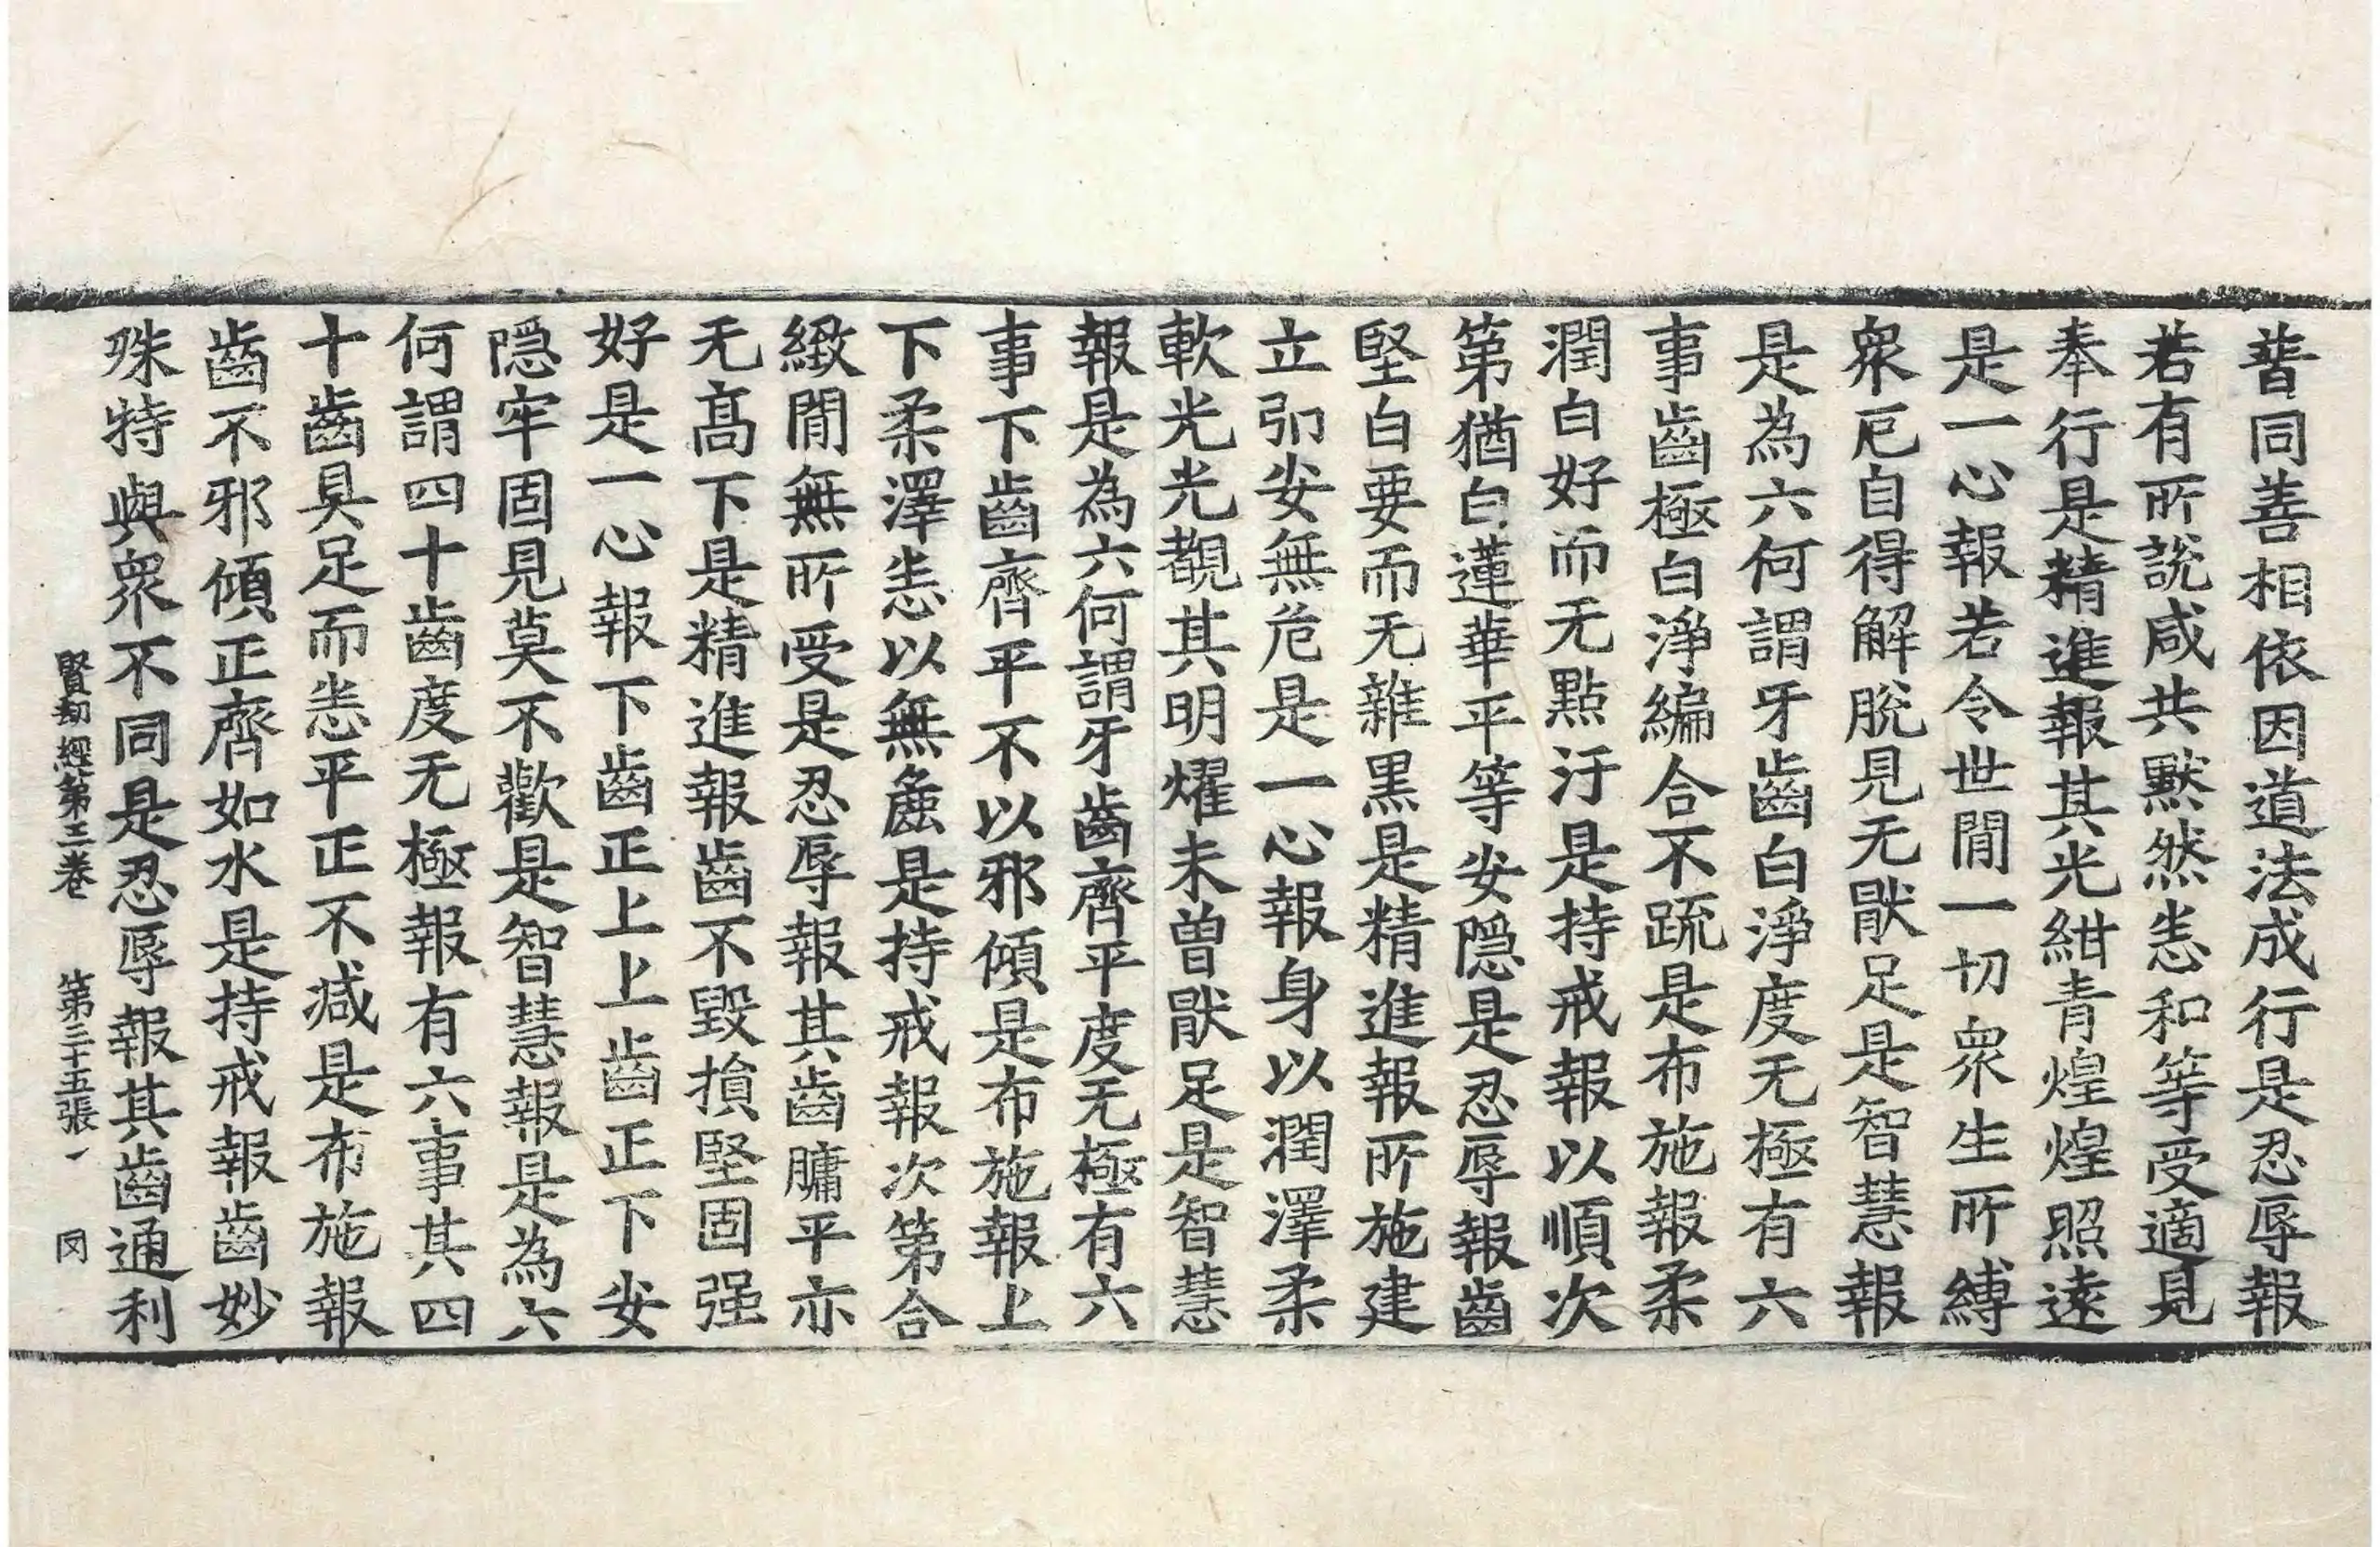 普同善相依因道法成行是忍辱報
若有所說咸共默然恙和等受適見
奉行是精進報其光紺青煌煌照遠
是一心報若令世閒一切衆生所縛
衆厄自得解脫見无猒足是智慧報
是為六何謂牙齒白淨度无極有六
事齒極白淨編合不疏是布施報柔
潤白好而无點汙是持戒報以順次
第猶白蓮華平等安隱是忍辱報齒
堅白要而无雜黑是精進報所施建
立卬安無危是一心報身以潤澤柔
軟光光觀其明耀未曾猒足是智慧
報是為六何謂牙齒齊平度无極有六
事下齒齊平不以邪傾是布施報上
下柔澤恙以無麁是持戒報次第合
緻閒無所受是忍辱報其齒牅平亦
无髙下是精進報齒不毀損堅固强
好是一心報下齒正上上齒正下安
隱牢固見莫不歡是智慧報是為六
何謂四十齒度无極報有六事其四
十齒具足而恙平正不減是布施報
齒不邪傾正齊如水是持戒報齒妙
殊特與衆不同是忍辱報其齒通利
賢劫經第三卷 第三十五張 一 冈